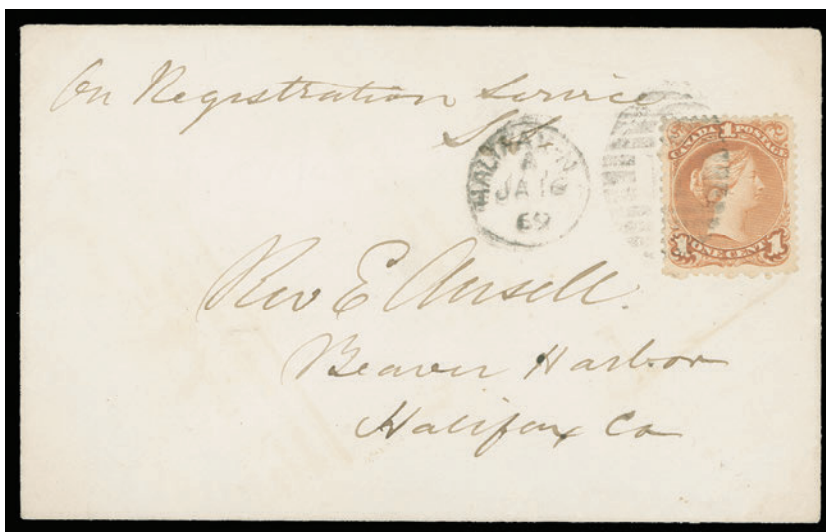 On Registration Service
HALIFAX.N
A
JA 16
69
CANADA POSTAGE
1
1 ONE CENT 1
Rev E Ansell.
Beaver Harbor
Halifax Co